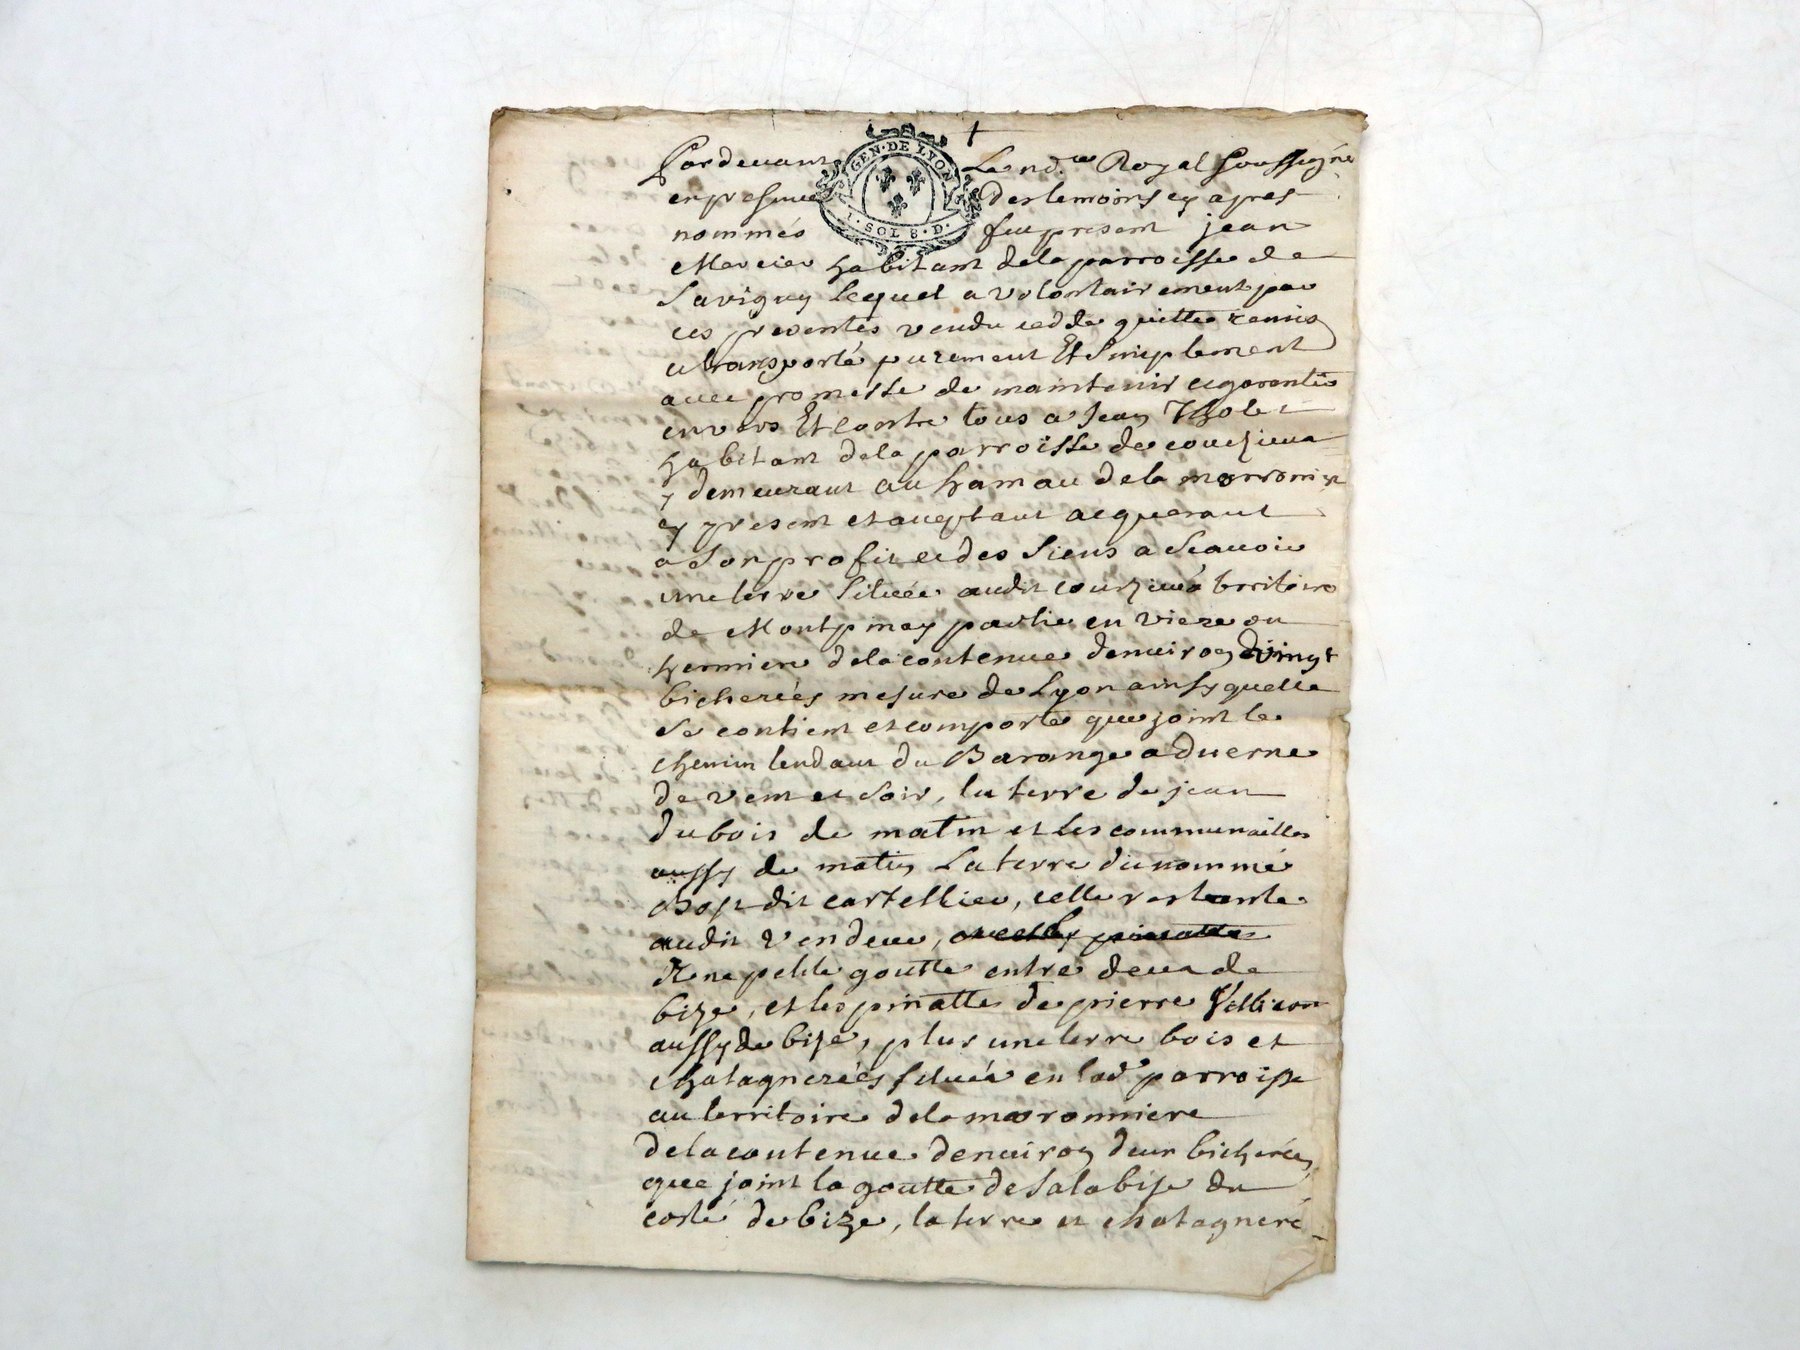 GEN·DE LYON
1·SOL 8·D·
Pardevant Le no.re Royal soussigné
en presence des temoins cy apres
nommés fut present jean
Mercier habitant de la parroisse de
Savigny lequel a volontairement par
ces presentes vendu cedde quitte remis
et transporté purement Et Simplement
avec promesse de maintenir et garentir
envers Et contre tous a Jean
habitant de la parroisse de courzieux
y demeurant au hamau de la maronnier
cy present et acceptant acquerant
a Son profit et des Siens a Scavoir
une terre Situéé audit courzieux territoire
de Montpiney partie en viere ou
hermiere de la contenue denviron vingt
bicherées mesure de Lyon ainsy quelle
Se contient et comporte que joint le
chemin tendant du Barange a duerne
de vent et Soir, la terre de jean
dubois de matin et les communailles
aussy de matin La terre du nommé
dit cartellier, celle restante
audit Vendeur,
Une petite goutte entre deux de
bize, et les pinatte de pierre
aussy de bize, plus une terre bois et
chatagnerées Situéé en lad.e parroisse
au territoire de la maronniere
de la contenue denviron deux bicherées
que joint la goutte de Salabize du
costé de bize, la terre et chatagneré